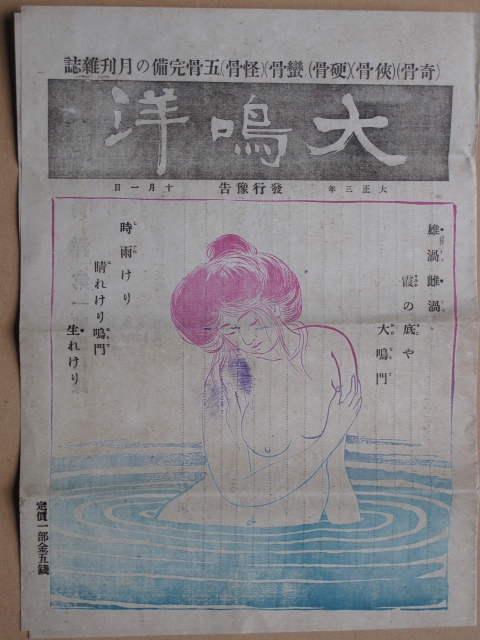 (奇骨)(俠骨)(硬骨)(蠻骨)(怪骨)五骨完備の月刊雜誌
大鳴洋
大正三年 發行豫告 十月一日
雄渦雌渦
霞の底や
大鳴門
時雨けり
晴れけり鳴門
生れけり
定價一部金五錢